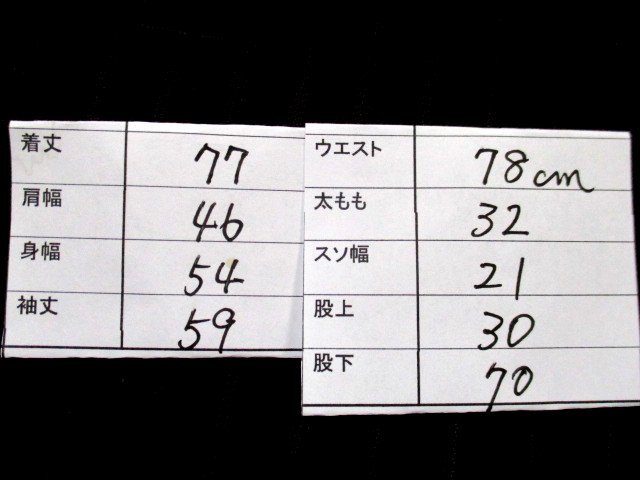 着丈 77
肩幅 46
身幅 54
袖丈 59
ウエスト 78cm
太もも 32
スソ幅 21
股上 30
股下 70